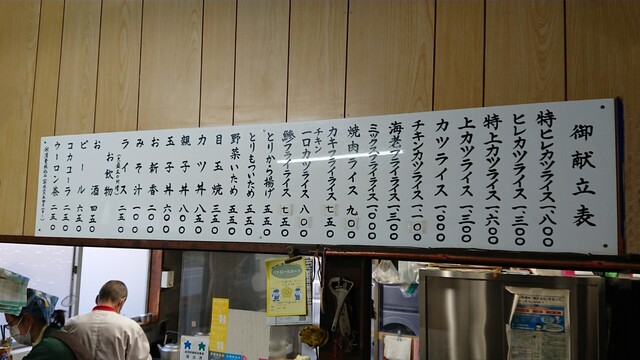 御献立表
特ヒレカツライス 一八〇〇
ヒレカツライス 一、三〇〇
特上カツライス 一六〇〇
上カツライス 一、三〇〇
カツライス 一、〇〇〇
チキンカツライス 一、一〇〇
海老フライライス 一三〇〇
ミックスフライライス 一、〇〇〇
焼肉ライス 九〇〇
カキフライライス
チキン
一口カツライス 八五〇
鯵フライライス 七五〇
とりから揚げ 五五〇
とりもついため 五五〇
野菜いため 五五〇
目玉焼 三五〇
カツ丼 八五〇
親子丼 八〇〇
玉子丼 六五〇
お新香 二〇〇
みそ汁 一〇〇
ライス 二五〇
お飲物
お酒 四五〇
ビール 六五〇
コカコーラ 二五〇
ウーロン茶 二五〇